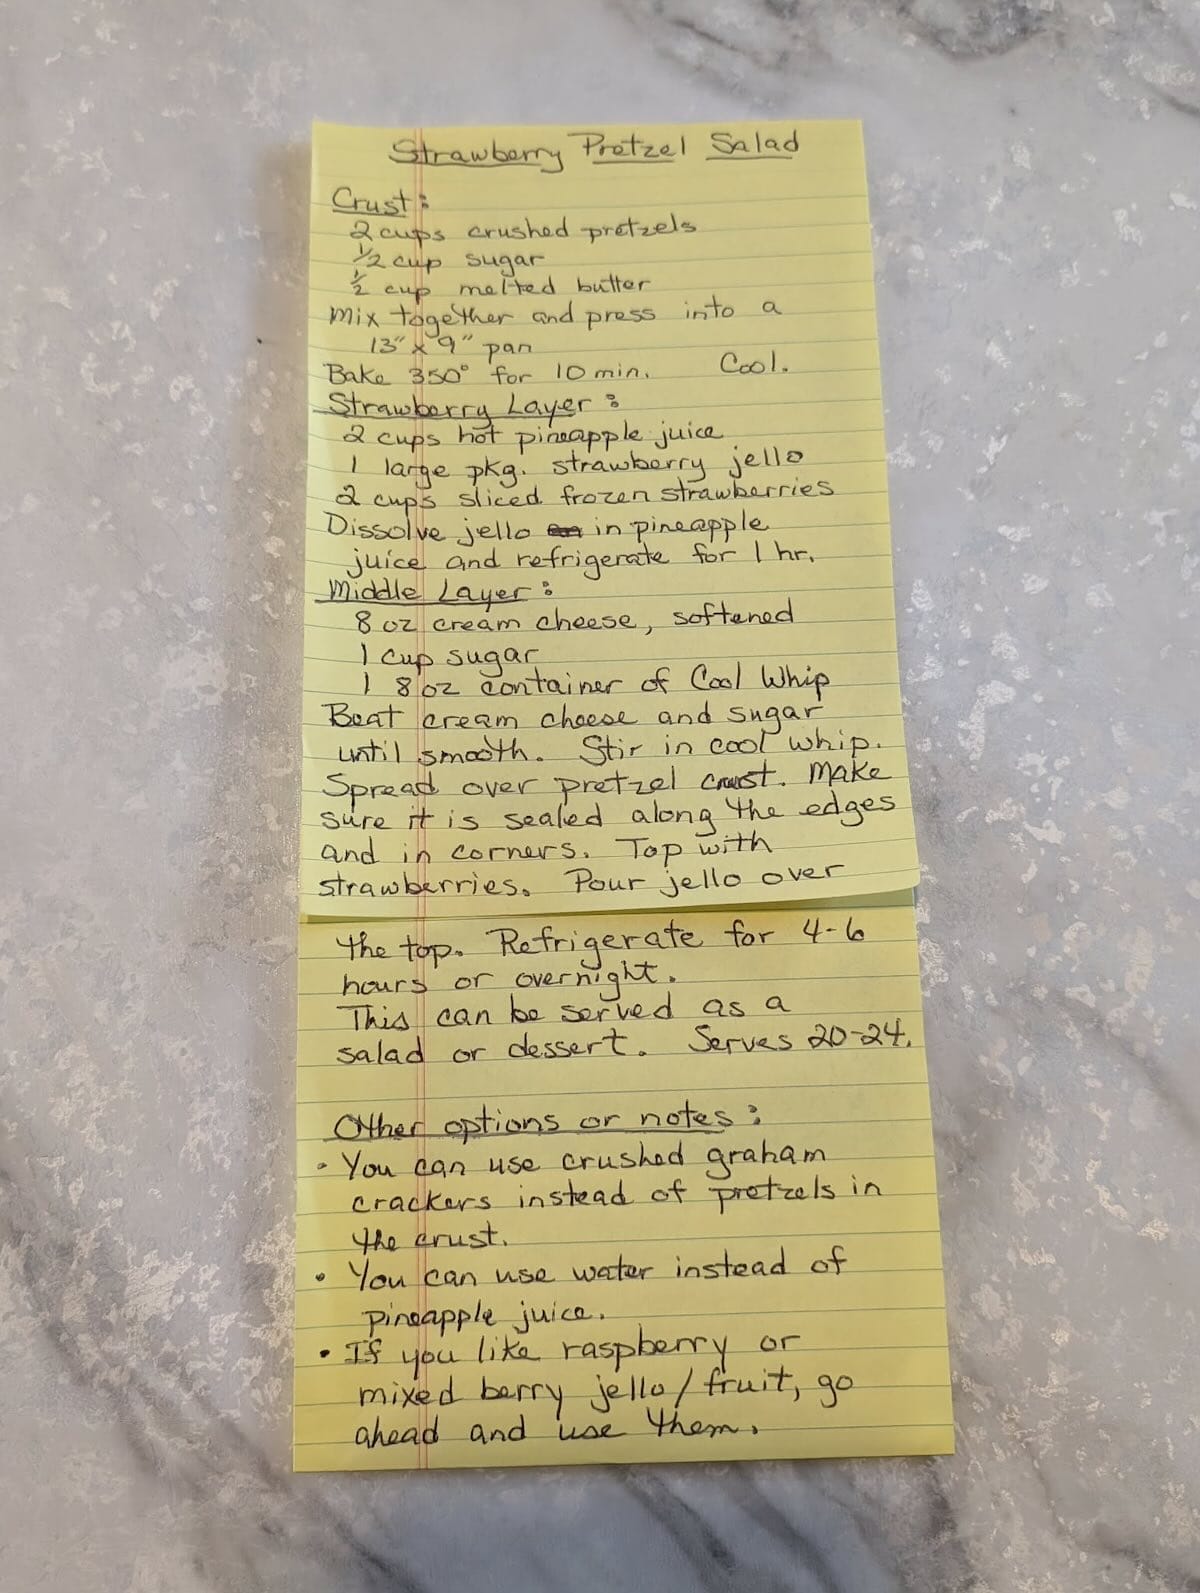 Strawberry Pretzel Salad
Crust:
2 cups crushed pretzels
1/2 cup sugar
1/2 cup melted butter
Mix together and press into a
13" x 9" pan
Bake 350° for 10 min. Cool.
Strawberry Layer:
2 cups hot pineapple juice
1 large pkg. strawberry jello
2 cups sliced frozen strawberries
Dissolve jello in pineapple
juice and refrigerate for 1 hr.
Middle Layer:
8 oz cream cheese, softened
1 cup sugar
1 8 oz container of Cool Whip
Beat cream cheese and sugar
until smooth. Stir in cool whip.
Spread over pretzel crust. Make
sure it is sealed along the edges
and in corners. Top with
strawberries. Pour jello over
the top. Refrigerate for 4-6
hours or overnight.
This can be served as a
salad or dessert. Serves 20-24.
Other options or notes:
• You can use crushed graham
crackers instead of pretzels in
the crust.
• You can use water instead of
pineapple juice.
• If you like raspberry or
mixed berry jello/fruit, go
ahead and use them.